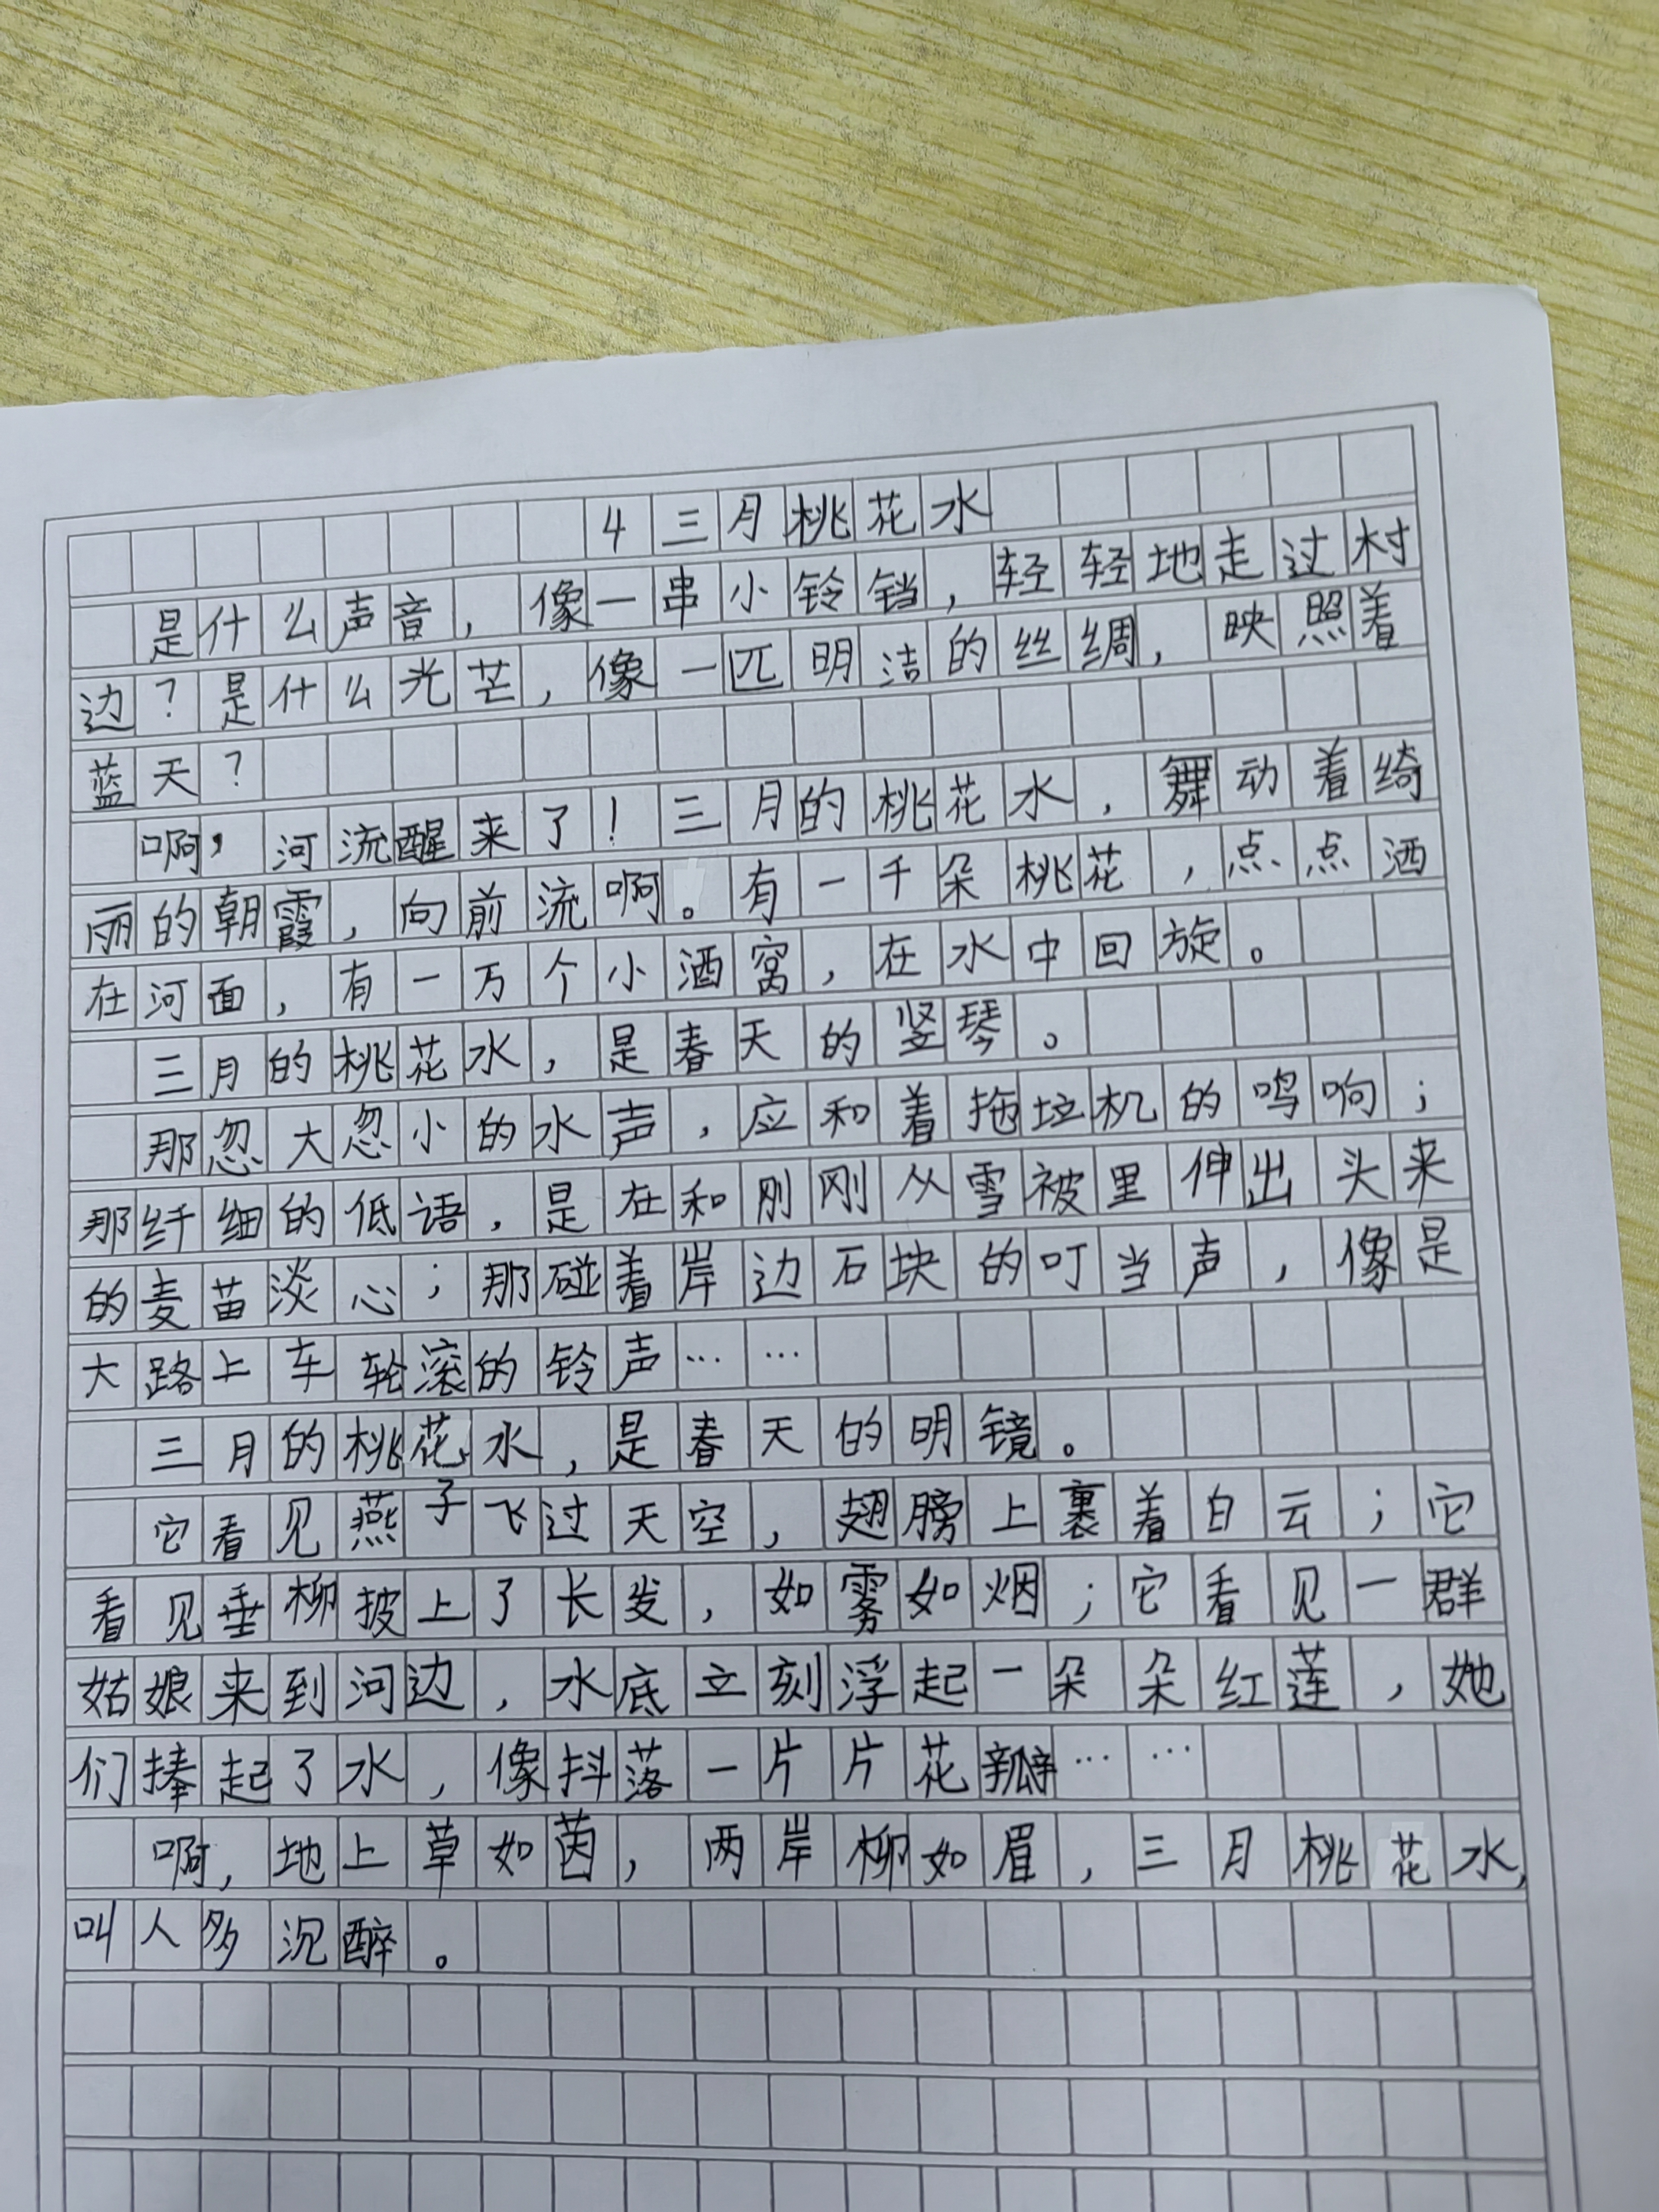 4 三月桃花水
是什么声音，像一串小铃铛，轻轻地走过村
边？是什么光芒，像一匹明洁的丝绸，映照着
蓝天？
啊，河流醒来了！三月的桃花水，舞动着绮
丽的朝霞，向前流啊。有一千朵桃花，点点洒
在河面，有一万个小酒窝，在水中回旋。
三月的桃花水，是春天的竖琴。
那忽大忽小的水声，应和着拖垃机的鸣响；
那纤细的低语，是在和刚刚从雪被里伸出头来
的麦苗淡心；那碰着岸边石块的叮当声，像是
大路上车轮滚的铃声……
三月的桃花水，是春天的明镜。
它看见燕子飞过天空，翅膀上裹着白云；它
看见垂柳披上了长发，如雾如烟；它看见一群
姑娘来到河边，水底立刻浮起一朵朵红莲，她
们捧起了水，像抖落一片片花瓣……
啊，地上草如茵，两岸柳如眉，三月桃花水，
叫人多沉醉。